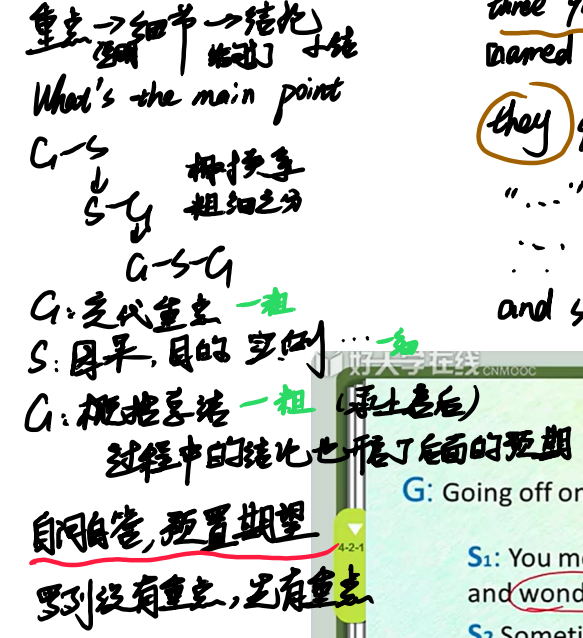 重点→细节→结论
What's the main point
小结
G-S
S-G
G-S-G
粗细之分
G: 交代重点 一粗
S: 因果,目的 实例 … 一细
G: 概括总结 一粗 (承上启后)
过程中的结论也开启了后面的预期
自问自答,预置期望
罗列没有重点,先有重点
three
named
they
"..."
....
and s
好大学在线 CNMOOC
G: Going off on
4-2-1
S1: You m
and wond
S2 Someti